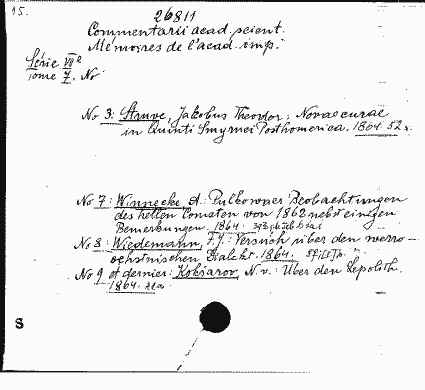 15.
26811
Commentarii acad. scient.
Mémoires de l'acad. imp.
Série VII e
tome 7. No
No 3: Struve, Jakobus Theodor: Novae curae
in Quinti Smyrnei Posthomerica. 1864 52 s.
No 7: Winnecke, A.: Pulkowaer Beobachtungen
des hellen Cometen von 1862 nebst einigen
Bemerkungen. 1864.
No 8: Wiedemann, F. J.: Versuch über den werro-
oehstnischen Dialekt. 1864.
No 9 et dernier: Kokšarov, N. v.: Über den Lepolith.
1864.
S